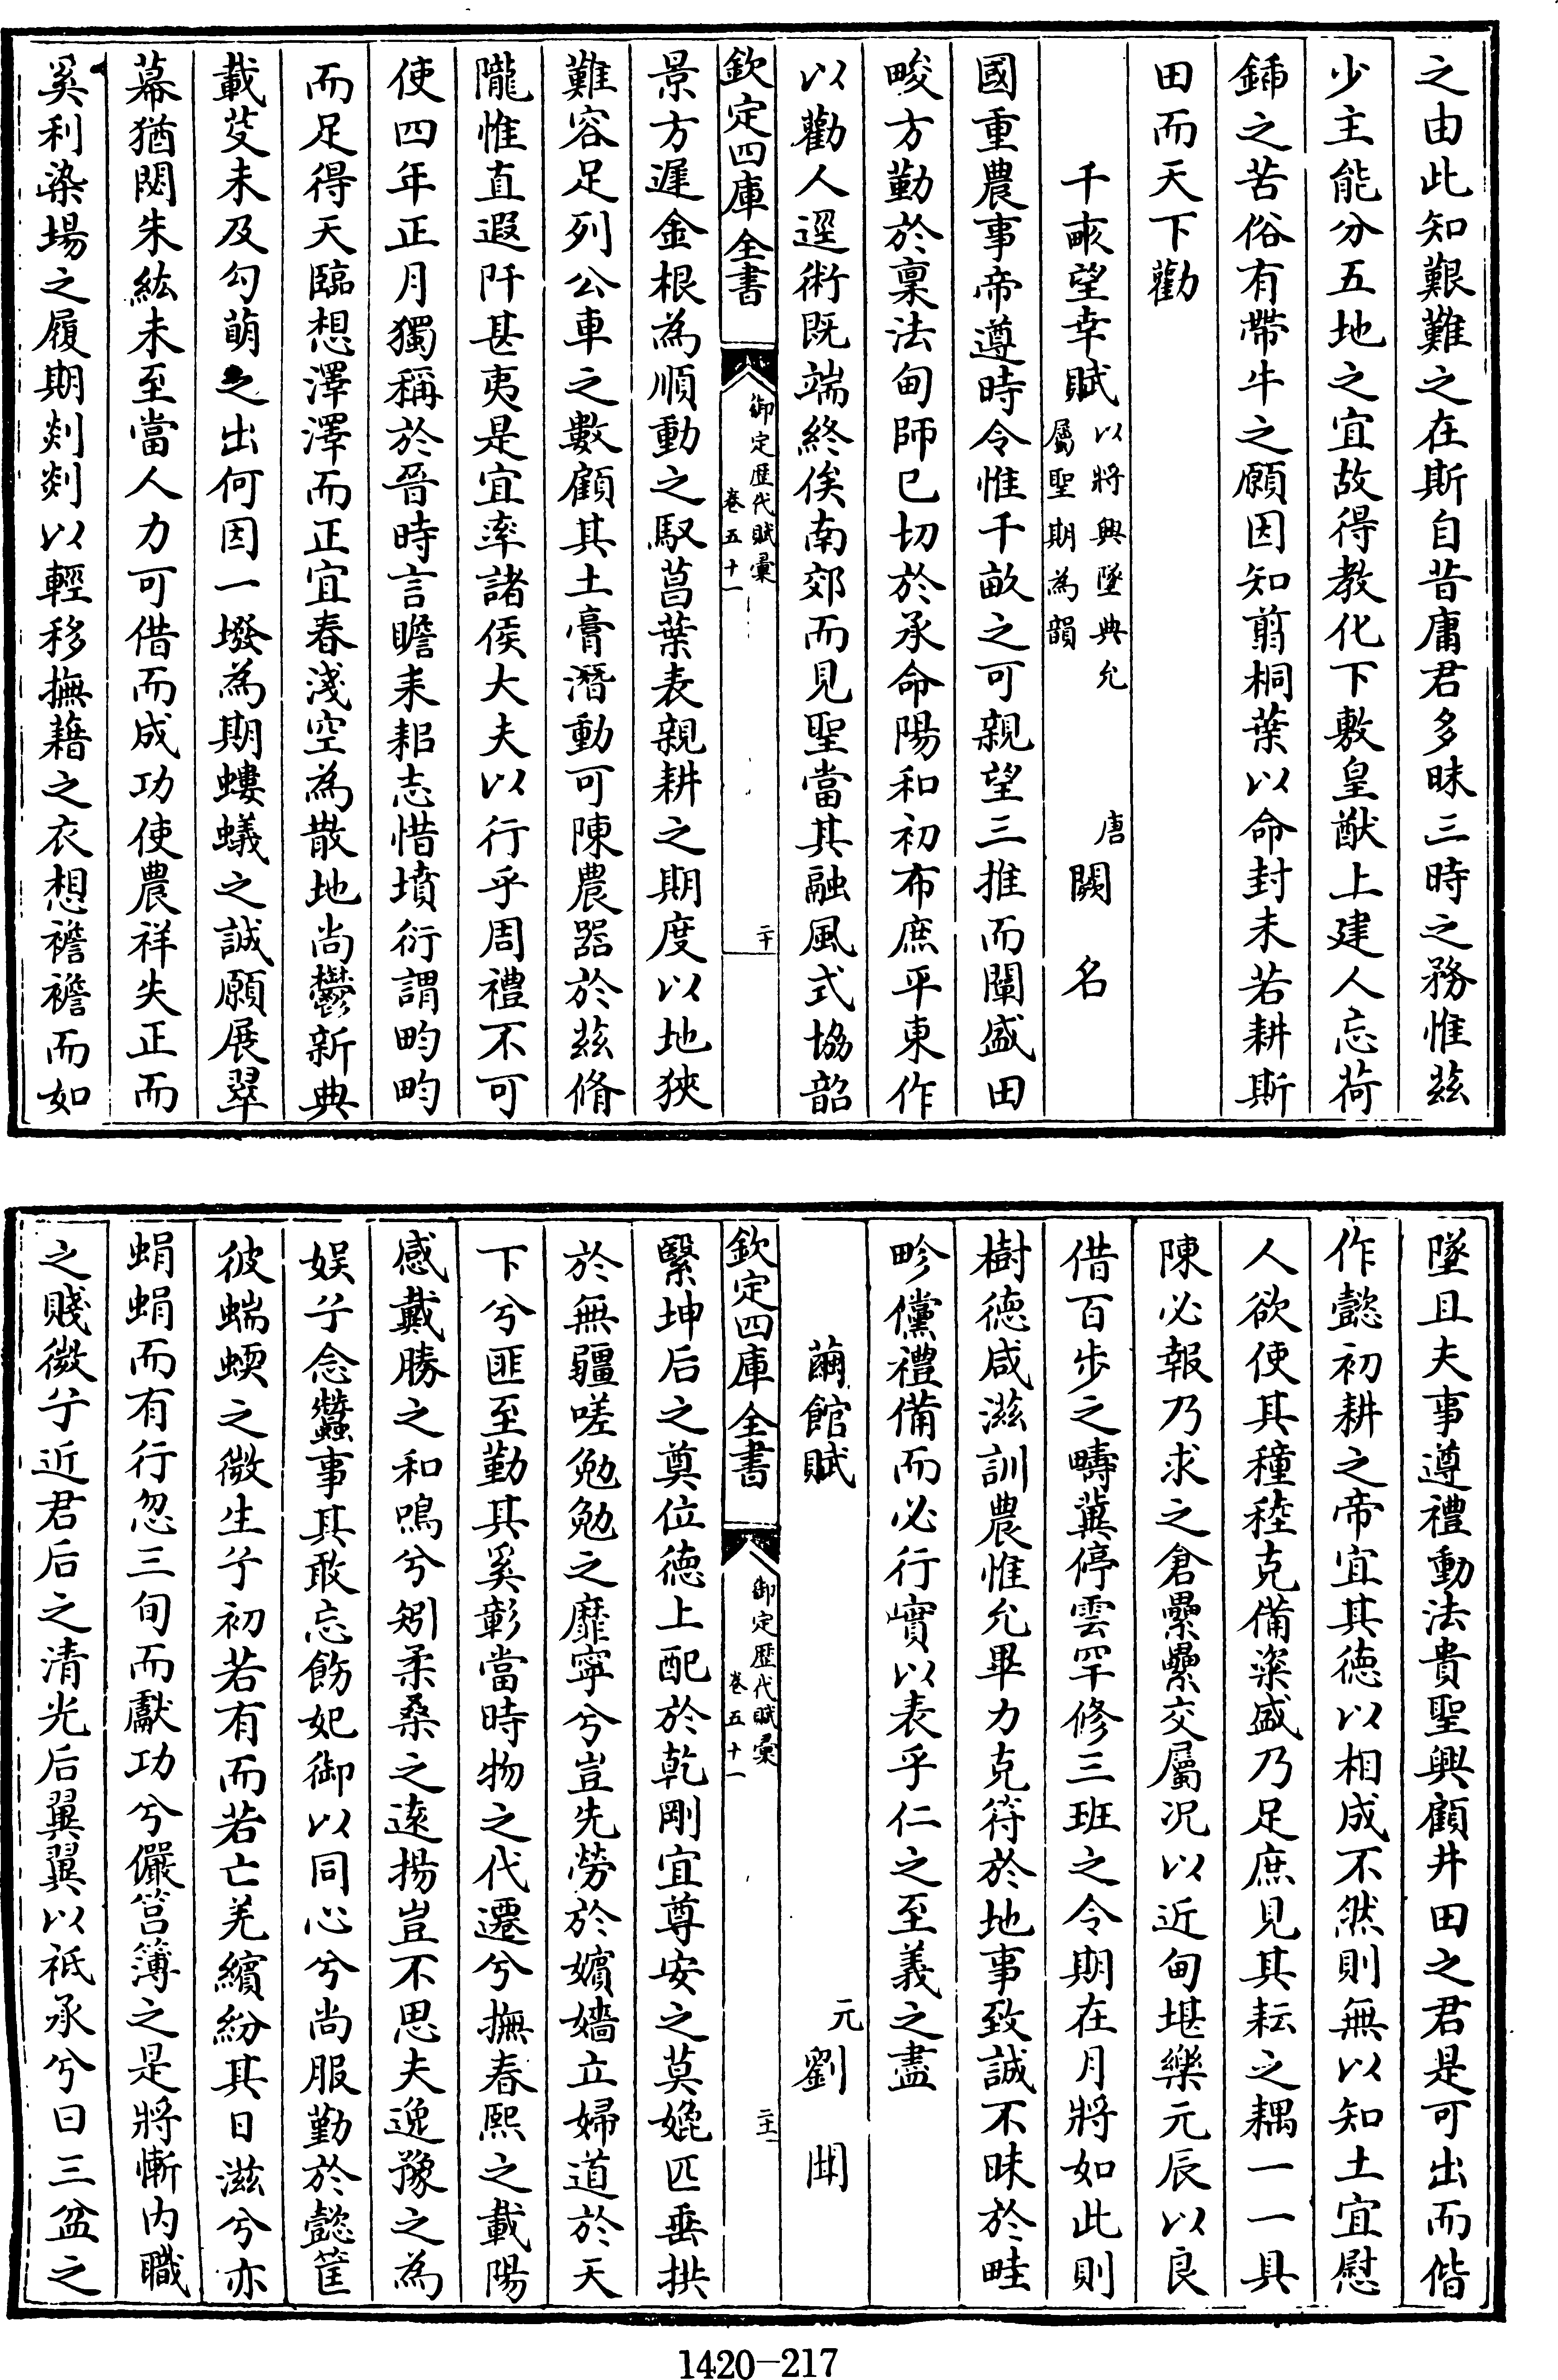 之由此知艱難之在斯自昔庸君多昧三時之務惟兹
少主能分五地之宜故得教化下敷皇猷上建人忘荷
鍤之苦俗有帶牛之願因知翦桐葉以命封未若耕斯
田而天下勸
千畝望幸賦以將興墜典允屬聖期為韻 唐闕名
國重農事帝遵時令惟千畝之可親望三推而闡盛田
畯方勤於稟法甸師已切於承命陽和初布庶平東作
以勸人逕術既端終俟南郊而見聖當其融風式協韶
欽定四庫全書 御定歴代賦彙 卷五十一 二十
景方遲金根為順動之馭菖葉表親耕之期度以地狹
難容足列公車之數顧其土膏潛動可陳農器於兹脩
隴惟直遐阡甚夷是宜率諸侯大夫以行乎周禮不可
使四年正月獨稱於晉時言瞻耒耜志惜墳衍謂畇畇
而足得天臨想澤澤而正宜春淺空為散地尚鬱新典
載芟未及勾萌之出何因一墢為期螻蟻之誠願展翠
幕猶閟朱紘未至當人力可借而成功使農祥失正而
奚利染場之履期剡剡以輕移撫藉之衣想襜襜而如
墜且夫事遵禮動法貴聖興顧井田之君是可出而偕
作懿初耕之帝宜其徳以相成不然則無以知土宜慰
人欲使其穜稑克備粢盛乃足庶見其耘之耦一一具
陳必報乃求之倉纍纍交屬況以近甸堪樂元辰以良
借百步之疇冀停雲罕修三班之令期在月將如此則
樹徳咸滋訓農惟允畢力克符於地事致誠不昧於畦
畛儻禮備而必行實以表乎仁之至義之盡
繭館賦 元劉聞
欽定四庫全書 御定歴代賦彙 卷五十一 二十一
繄坤后之奠位徳上配於乾剛宜尊安之莫媲匹垂拱
於無疆嗟勉勉之靡寧兮豈先勞於嬪嬙立婦道於天
下兮匪至勤其奚彰當時物之代遷兮撫春熙之載陽
感戴勝之和鳴兮矧柔桑之逺揚豈不思夫逸豫之為
娱兮念蠶事其敢忘飭妃御以同心兮尚服勤於懿筐
彼蝡蝡之微生兮初若有而若亡羌繽紛其日滋兮亦
蜎蜎而有行忽三旬而獻功兮儼筥簿之是將慚内職
之賤微兮近君后之清光后翼翼以祗承兮曰三盆之
1420—217